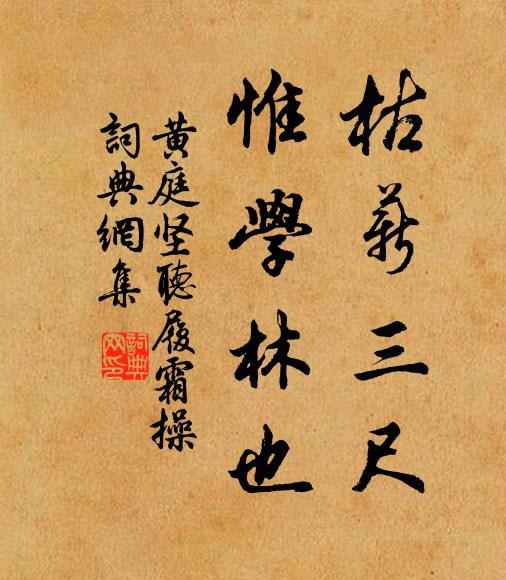 枯薪三尺
惟學林也
黄庭坚聽履霜操
詞典網集
詞典網印